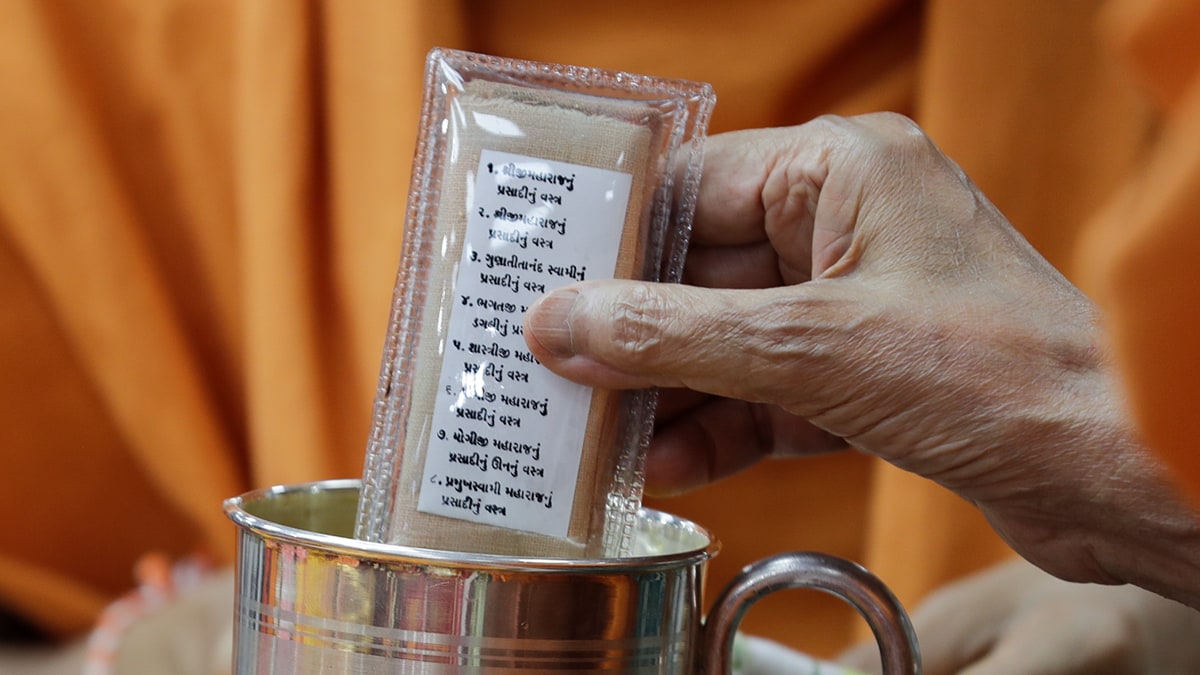 ૧. શ્રીજીમહારાજનું
પ્રસાદીનું વસ્ત્ર
૨. શ્રીજીમહારાજનું
પ્રસાદીનું વસ્ત્ર
૩. ગુણાતીતાનંદ સ્વામીનું
પ્રસાદીનું વસ્ત્ર
૪. ભગતજી
ડગલીનું
૫. શાસ્ત્રીજી
પ્રસાદીનું વસ્ત્ર
૬. મહારાજનું
પ્રસાદીનું વસ્ત્ર
૭. યોગીજી મહારાજનું
પ્રસાદીનું ઊનનું વસ્ત્ર
૮. પ્રમુખસ્વામી મહારાજનું
પ્રસાદીનું વસ્ત્ર